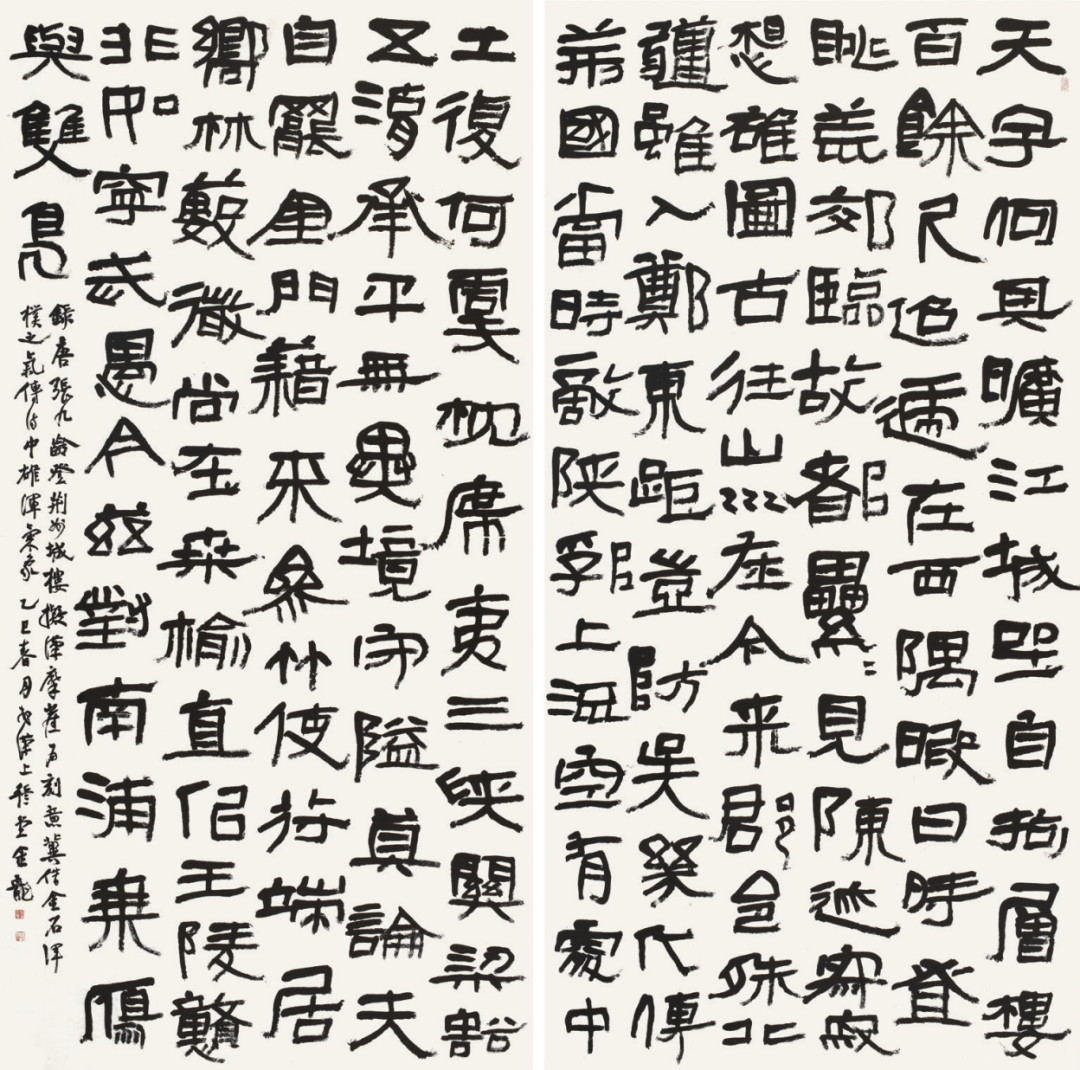 天宇何其曠江城坐自拘層樓
百餘尺迢遞在西隅暇日時登
眺荒郊臨故都纍〻見陳迹寂寂
想雄圖古往山川在今來郡邑殊北
疆雖入鄭東距豈防吳幾代傳
荊國當時敵陝郛上流空有處中
土復何虞枕席夷三峽關梁豁
五湖承平無異境守隘莫論夫
自罷金門籍來參竹使符端居
嚮林藪微尚在桑榆直侣王陵戇
非如寧武愚今茲對南浦乘鴈
與雙鳧
錄唐張九齡登荊州城樓擬漢摩崖石刻意冀借金石渾
樸之氣傳詩中雄渾氣象乙巳春月於漢上堂金龍